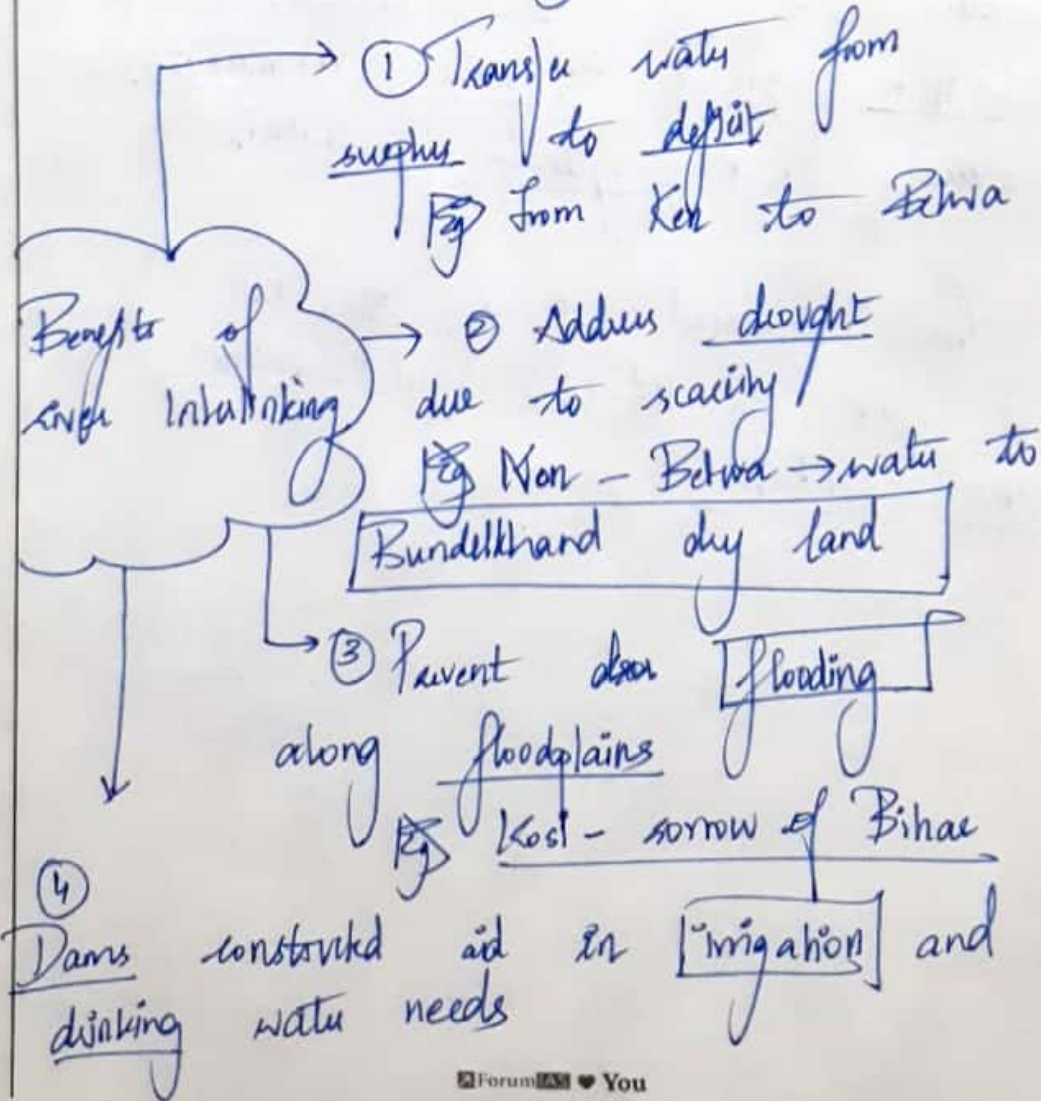 ① Transfer water from
surplus to deficit
Eg from Ken to Betwa
Benefits of
river Interlinking
② Address drought
due to scarcity
Eg Non - Betwa → water to
Bundelkhand dry land
③ Prevent flooding
along floodplains
Eg Kosi - sorrow of Bihar
④
Dams constructed aid in irrigation and
drinking water needs
ForumIAS ♥ You